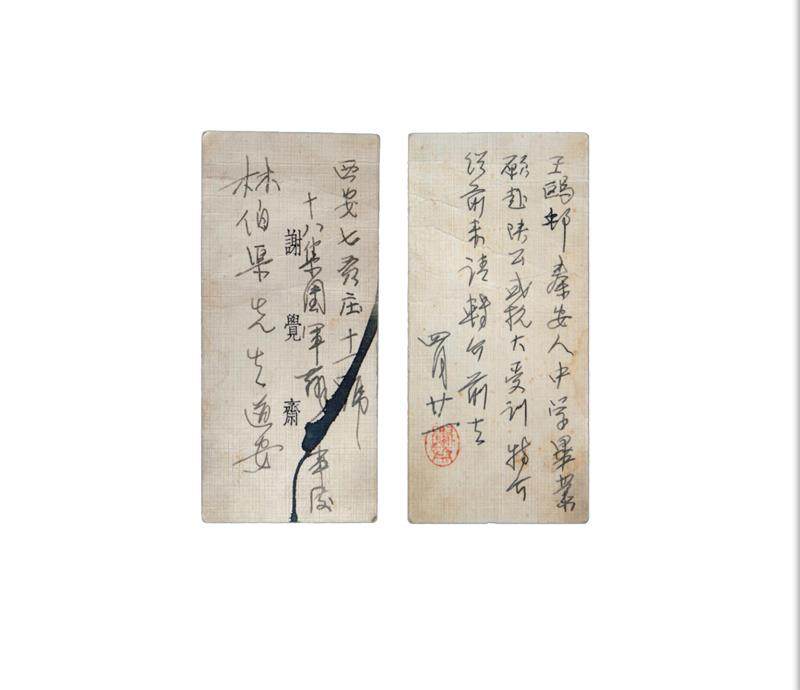 西安七贤庄十一號
十八集團軍辦事处
謝覺齋
林伯渠先生道安
王鸥邨秦安人中学畢業
願赴陕公或抗大受训特介
绍前来请轉介前去
四月廿一